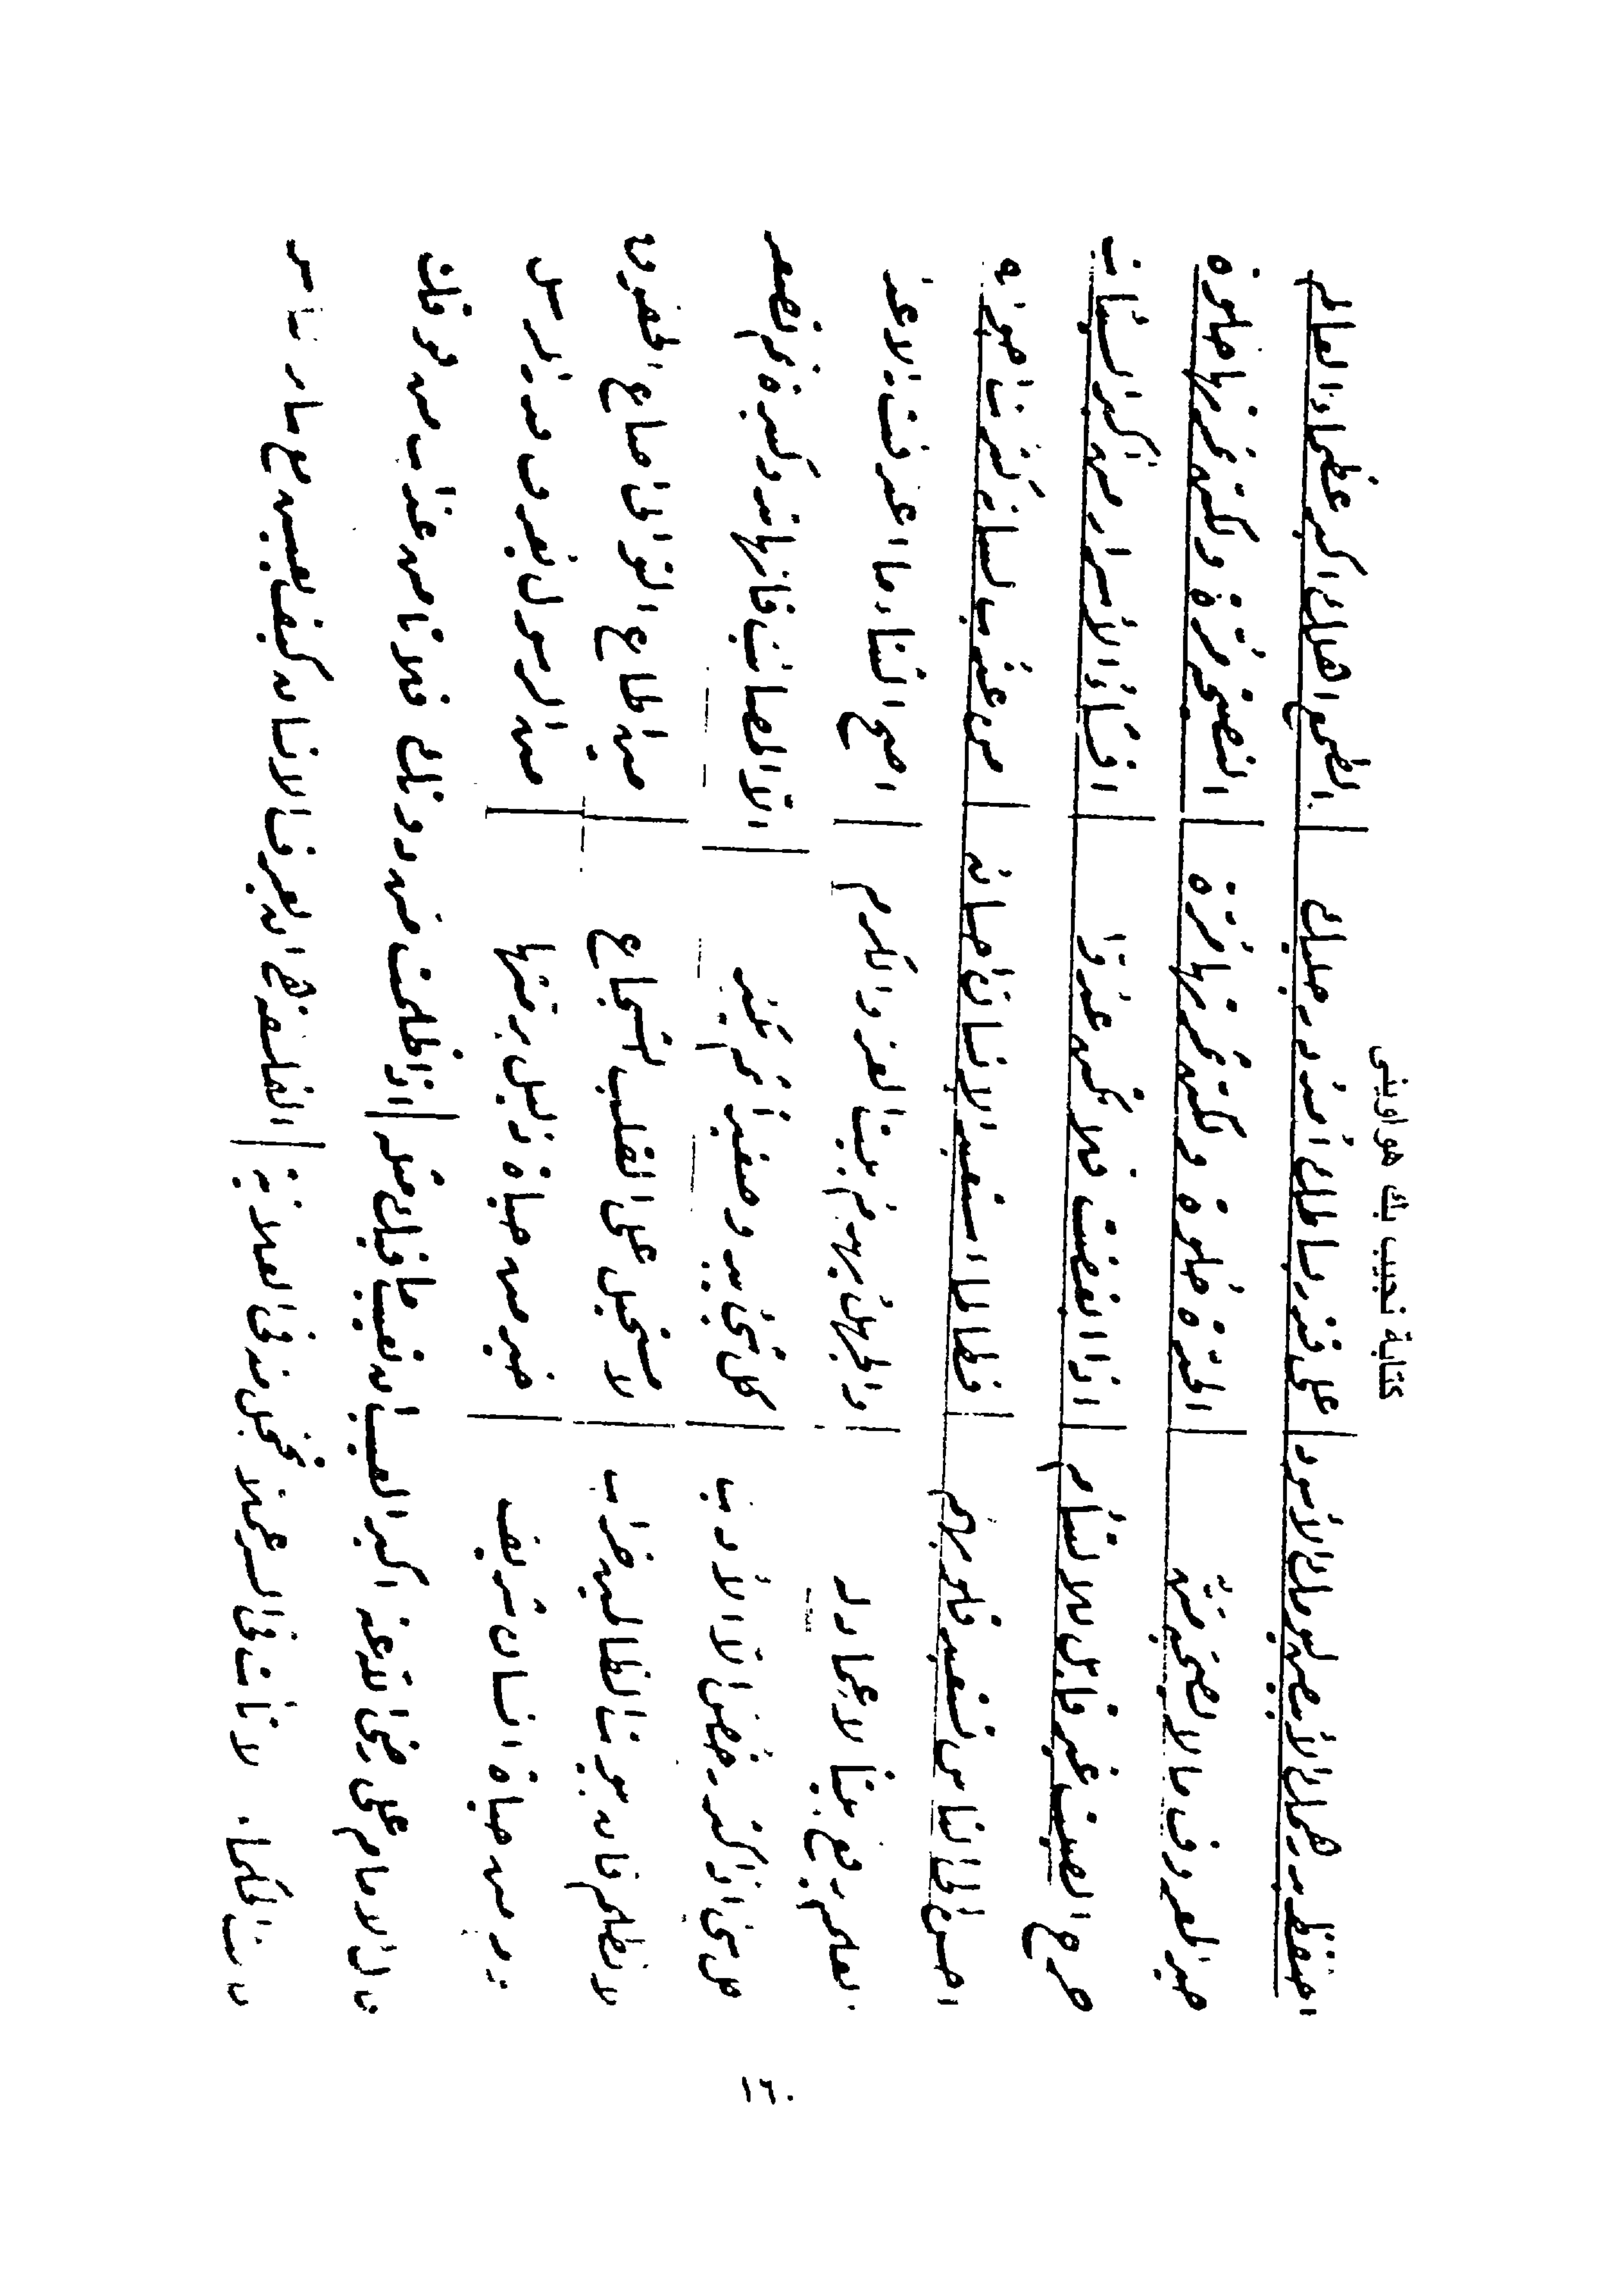 كتابة نجيب بك هواويني
احتفظ بدرهمك الأبيض ليومك الأسود | على قدر بساطك أمدد رجليك | الطمع اهلك اكبر عظماء العالم
خير المعروف ما لا يصحبه منّ | حلوة ولكن ثمرتها مرة | النصيحة مرة ولكن ثمرتها حلوة
جرح الصيت غير قابل للالتئام | اذا ابغضت فلا تكن عدوا | افشاء الأسرار من أكبر السيئات
احسن الى الناس تستعبد قلوبهم | فطالما استعبد الانسان احسان | من عذب لسانه كثرت اخوانه
العلم يرفع بيتا لا عماد له | والجهل يهدم بيت العز والكرم | اصح الثناء ما اعترفت به الاعدا
كل شيء اذا كثر رخص الا الأدب | كل شيء يبدو صغيرا ثم يكبر | الا المصائب فانها تبدو كبيرة ثم تصغر
لا تظلم فان بيوت الظالمين خراب | لا مستحيل على القلب الشجاع | من اطاع التواني اضاع الحقوق
يوم من حياة انسان شريف | خير من حياة ذليل برمتها | من الرسول يعرف قدر المرسل
قال الامام علي رضي الله عنه اكبر العيب ان تعيب ما فيك مثله | اذا ظلمت من دونك فلا تأمن عذاب من فوقك
قالت الحكماء لا تأت في السر عملا تخجل منه في العلانية | الفلسفة هي ان يعرف الانسان كيف يعيش مع سائر الناس